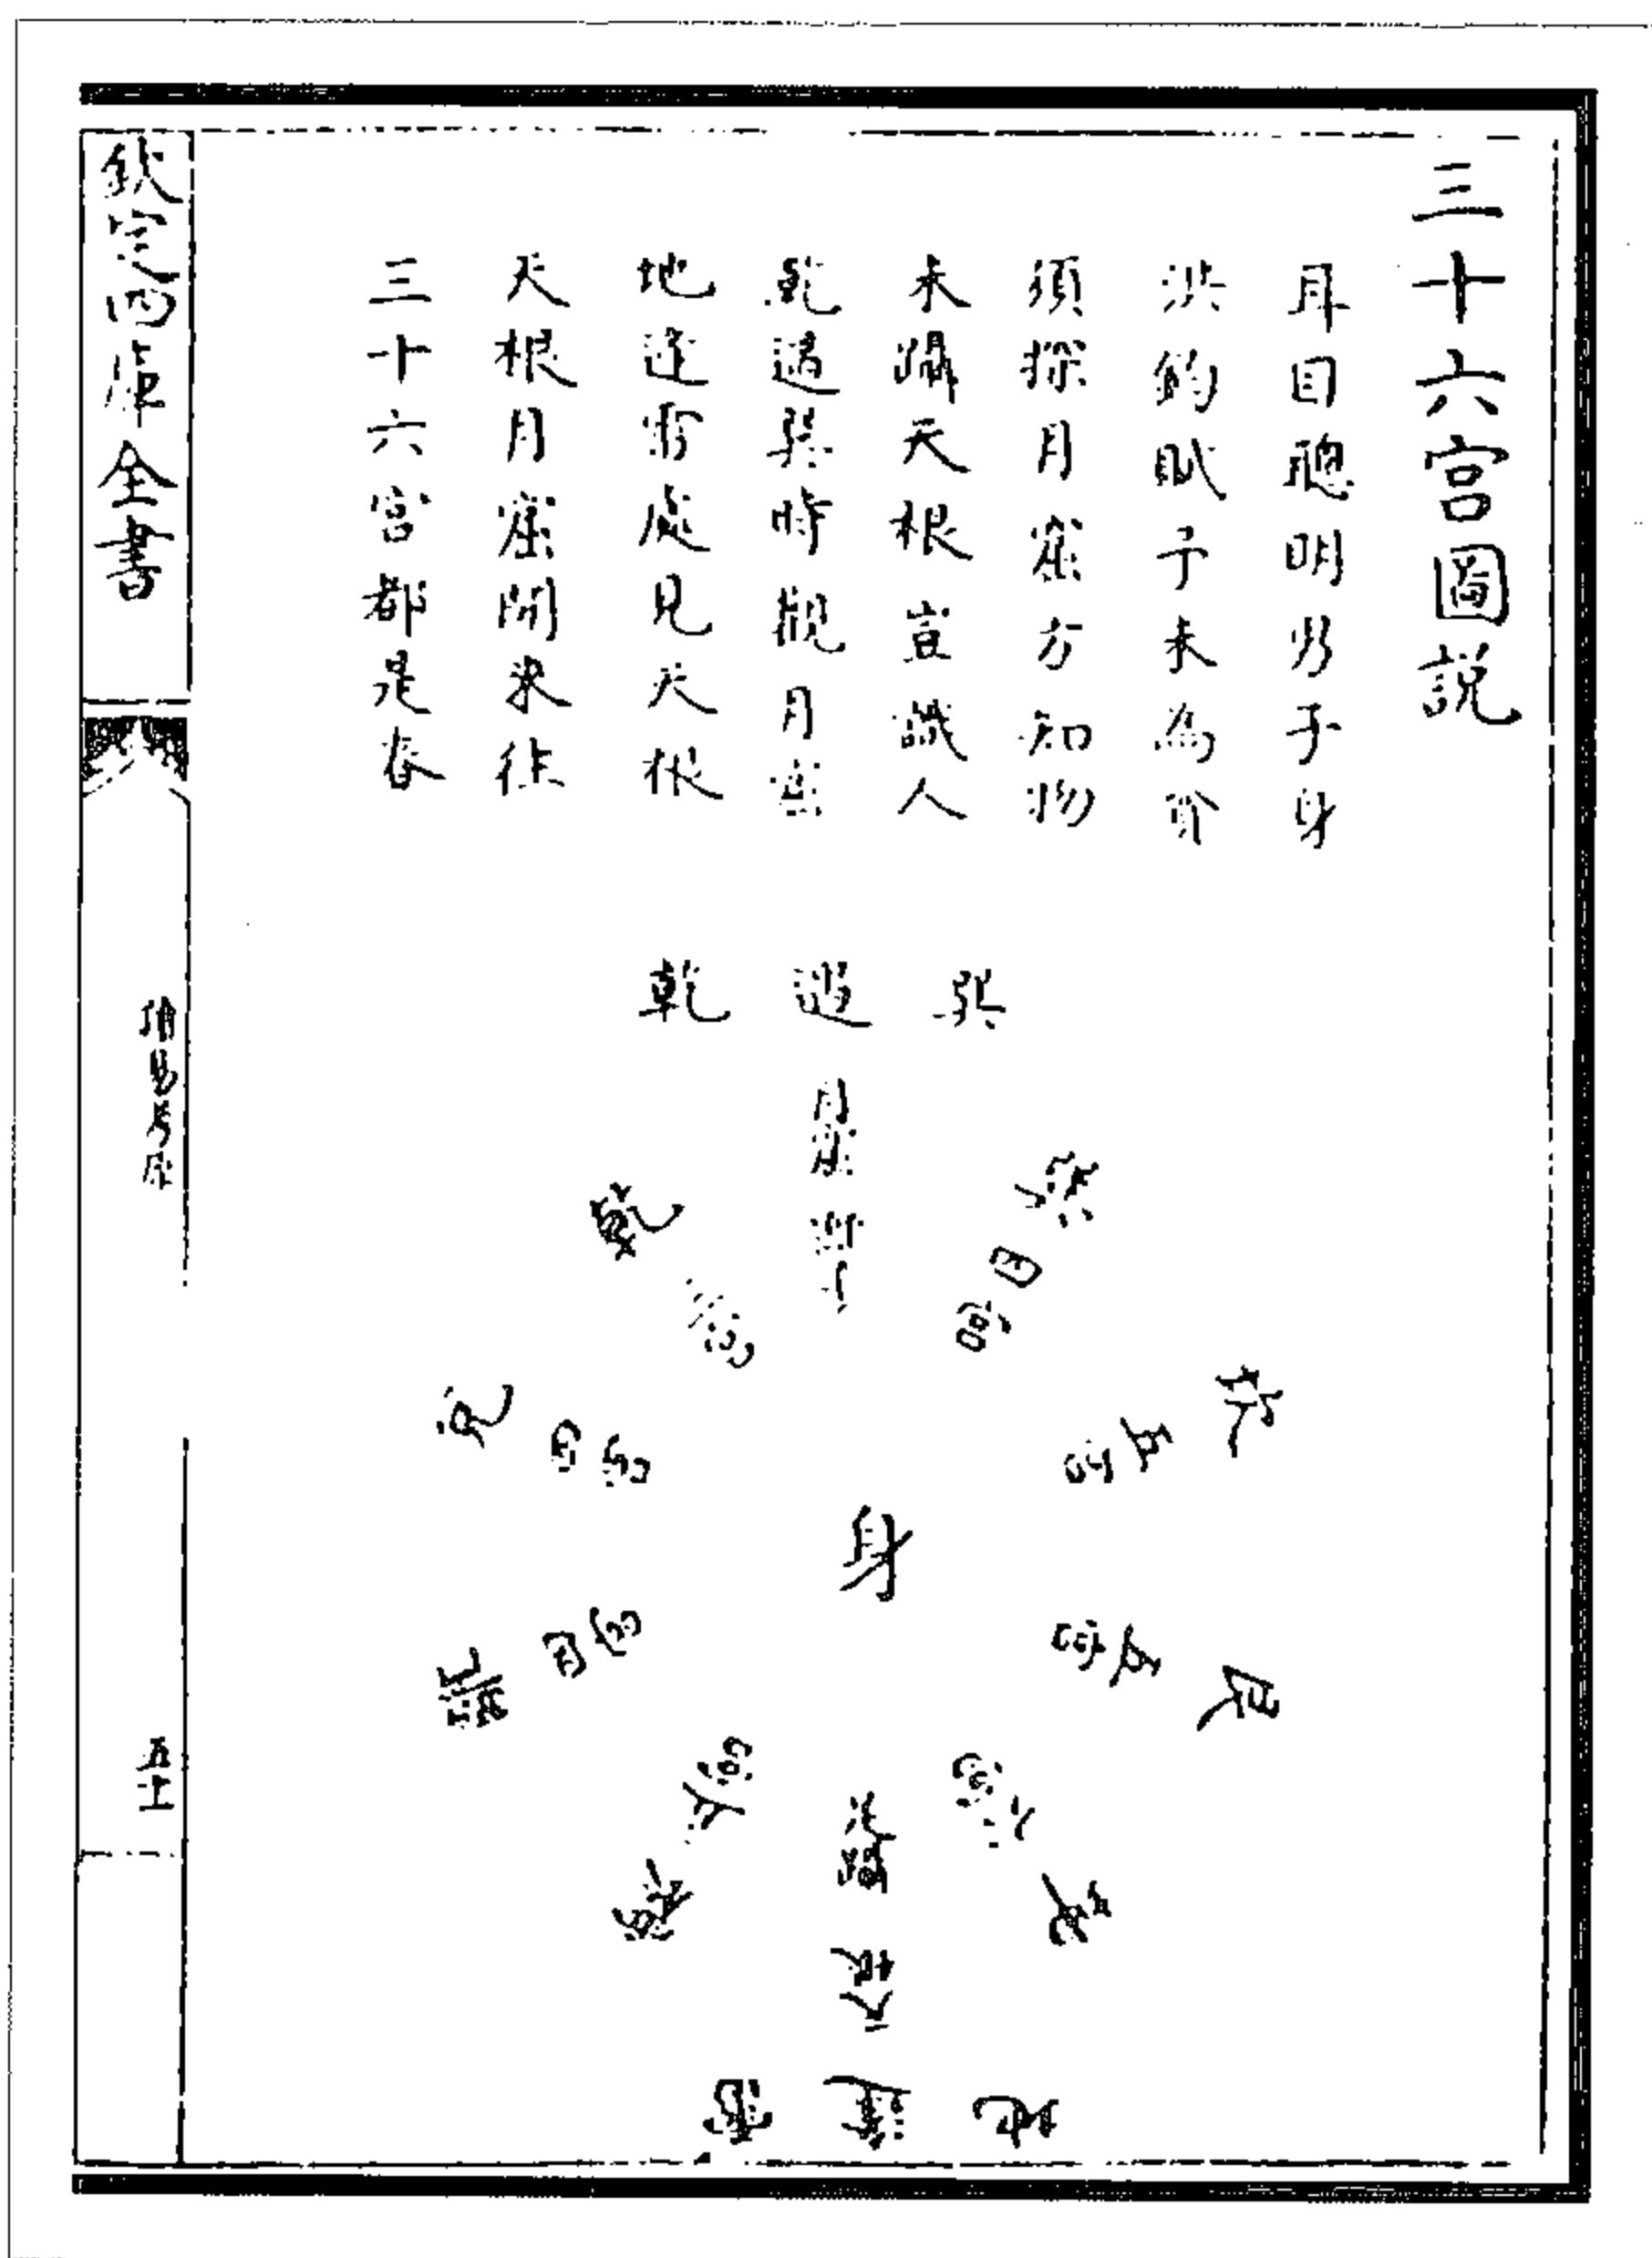 三十六宮圖說
耳目聰明男子身
洪鈞賦予未為貧
須探月窟方知物
未躡天根豈識人
乾遇巽時觀月窟
地逢雷處見天根
天根月窟閒來往
三十六宮都是春
乾遇巽
月窟
乾三宮
兌四宮
離四宮
震五宮
巽四宮
坎五宮
艮五宮
坤六宮
身
地逢雷
欽定四庫全書